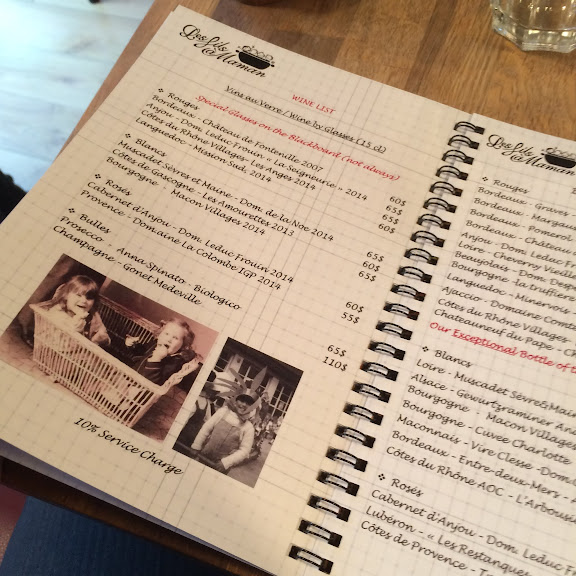 Les fils
@Maman
WINE LIST
Vins au Verre / Wine by Glasses (15 cl)
Special Glasses on the Blackboard (not always)
❖ Rouges
Bordeaux - Château de Fontenille 2007 60$
Anjou - Dom. Leduc Frouin « La Seigneurie » 2014 65$
Côtes du Rhône Villages- Les Anges 2014 65$
Languedoc - Mission Sud, 2014 60$
❖ Blancs
Muscadet Sèvres et Maine - Dom. de la Noe 2014 65$
Côtes de Gascogne - Les Amourettes 2013 60$
Bourgogne - Macon Villages 2014 65$
❖ Rosés
Cabernet d'Anjou - Dom. Leduc Frouin 2014 60$
Provence - Domaine La Colombe IGP 2014 55$
❖ Bulles
Prosecco - Anna Spinato - Biologico 65$
Champagne - Gonet Medeville 110$
10% Service Charge
Les fils
@Maman
❖ Rouges
Bordeaux - Graves -
Bordeaux - Margaux
Bordeaux - Pomerol
Bordeaux - Château
Anjou - Dom. Leduc F
Loire, Cheverny Vieill
Beaujolais - Dom. Desp
Bourgogne - la truffiere
Languedoc - Minervois
Ajaccio - Domaine Comt
Côtes du Rhône Villages -
Chateauneuf du Pape - C
Our Exceptional Bottle of t
❖ Blancs
Loire - Muscadet Sèvre&Main
Alsace - Gewürtzraminer An
Bourgogne - Macon Villages
Bourgogne - Cuvee Charlotte
Maconnais - Vire Clesse -Dom.
Bordeaux - Entre-deux-Mers - A
Côtes du Rhône AOC - L'Arbous
❖ Rosés
Cabernet d'Anjou - Dom. Leduc Fr
Lubéron - « Les Restanques
Côtes de Provence - T